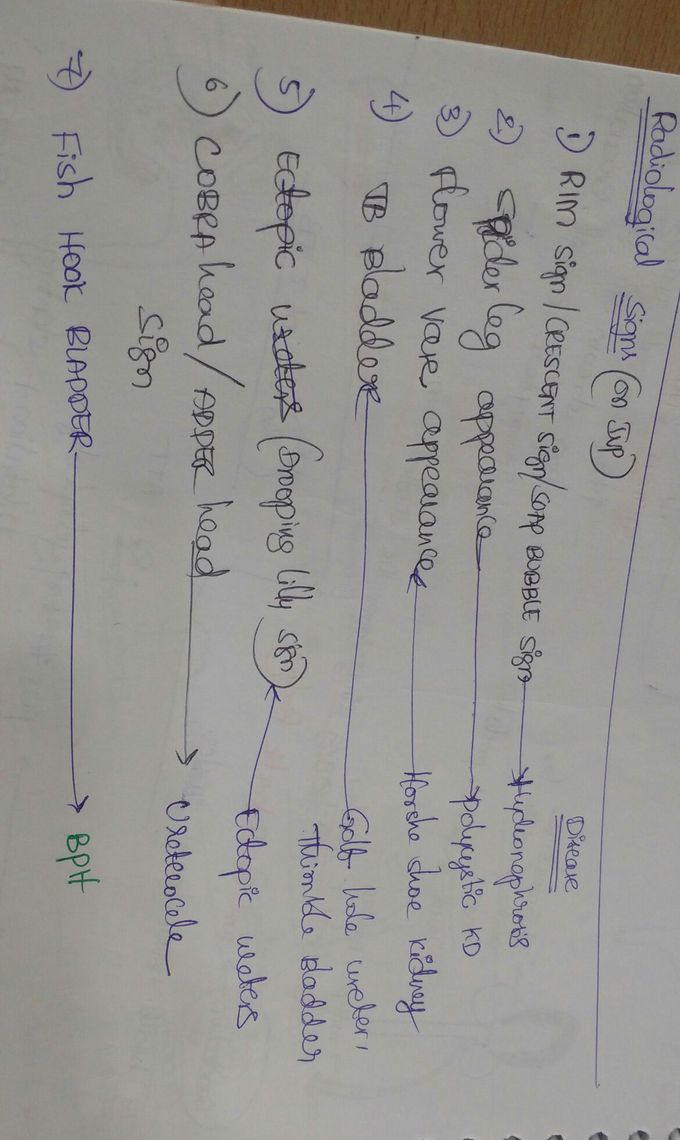 Radiological Signs (on IVP)
Disease
1) RIM sign/CRESCENT sign/SOAP BUBBLE sign → Hydronophrosis
2) Spider leg appearance → polycystic KD
3) Flower vase appearance ← Horshe shoe kidney
4) TB Bladder — Golf hole ureter,
Thimble Bladder
5) Ectopic ureters (Drooping lilly sign) ← Ectopic ureters
6) COBRA head/ADDER head → Ureterocele
sign
7) Fish HOOK BLADDER → BPH